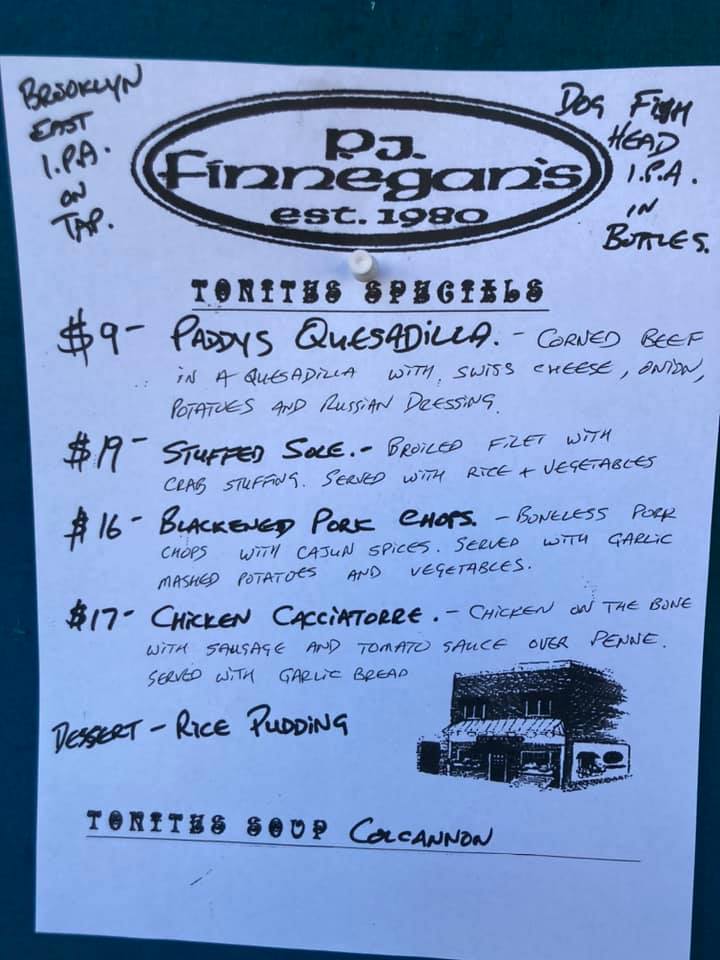 BROOKLYN
EAST
I.P.A.
ON
TAP.
DOG FISH
HEAD
I.P.A.
IN
BOTTLES.
P.J.
Finnegan's
est. 1980
TONITES SPECIALS
$9- PADDYS QUESADILLA. - CORNED BEEF
IN A QUESADILLA WITH SWISS CHEESE, ONION,
POTATOES AND RUSSIAN DRESSING.
$19- STUFFED SOLE. - BROILED FILET WITH
CRAB STUFFING. SERVED WITH RICE + VEGETABLES
$16- BLACKENED PORK CHOPS. - BONELESS PORK
CHOPS WITH CAJUN SPICES. SERVED WITH GARLIC
MASHED POTATOES AND VEGETABLES.
$17- CHICKEN CACCIATORRE. - CHICKEN ON THE BONE
WITH SAUSAGE AND TOMATO SAUCE OVER PENNE.
SERVED WITH GARLIC BREAD
DESSERT - RICE PUDDING
TONITES SOUP COLCANNON